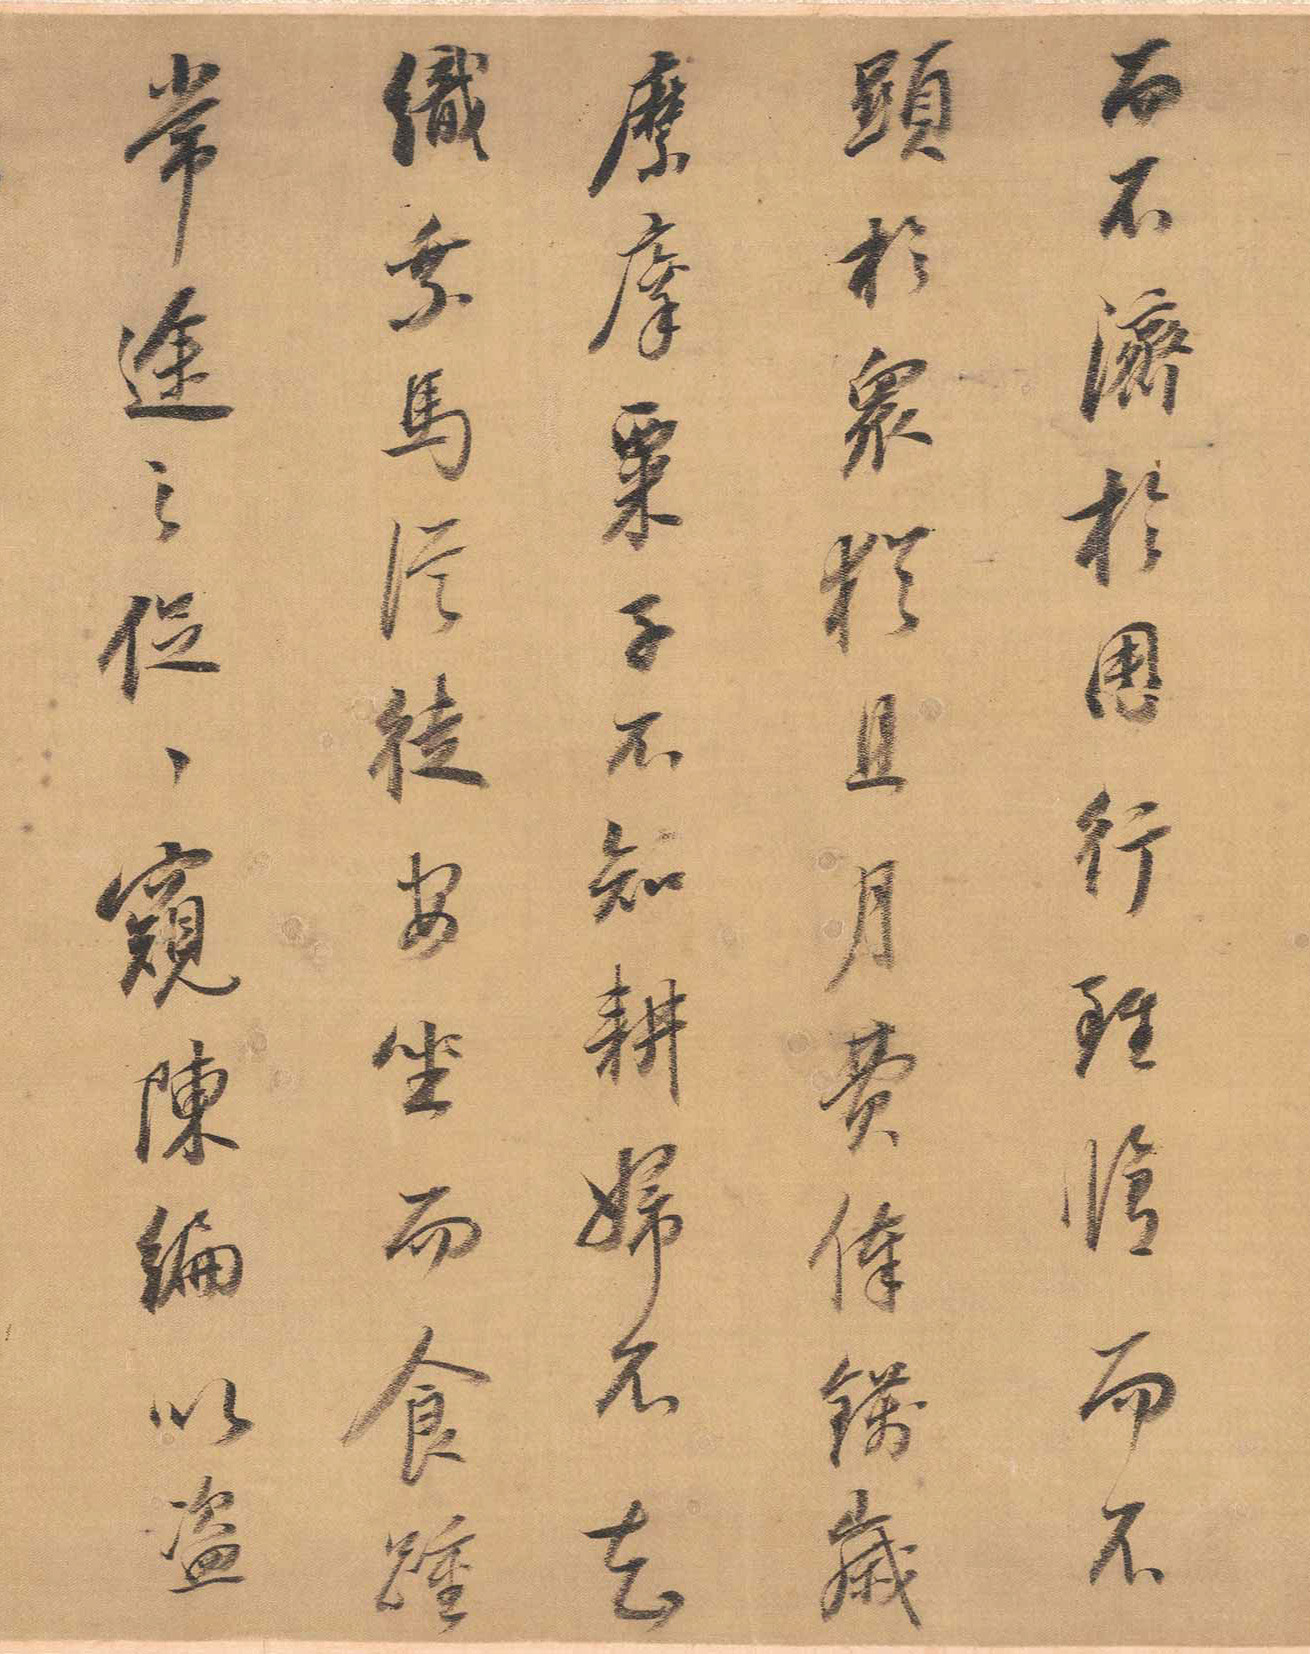 而不濟於用行雖脩而不
顯於眾猶且月費俸錢歲
縻廩粟子不知耕婦不知
織乘馬從徒安坐而食踵
常途之促〻窺陳編以盜